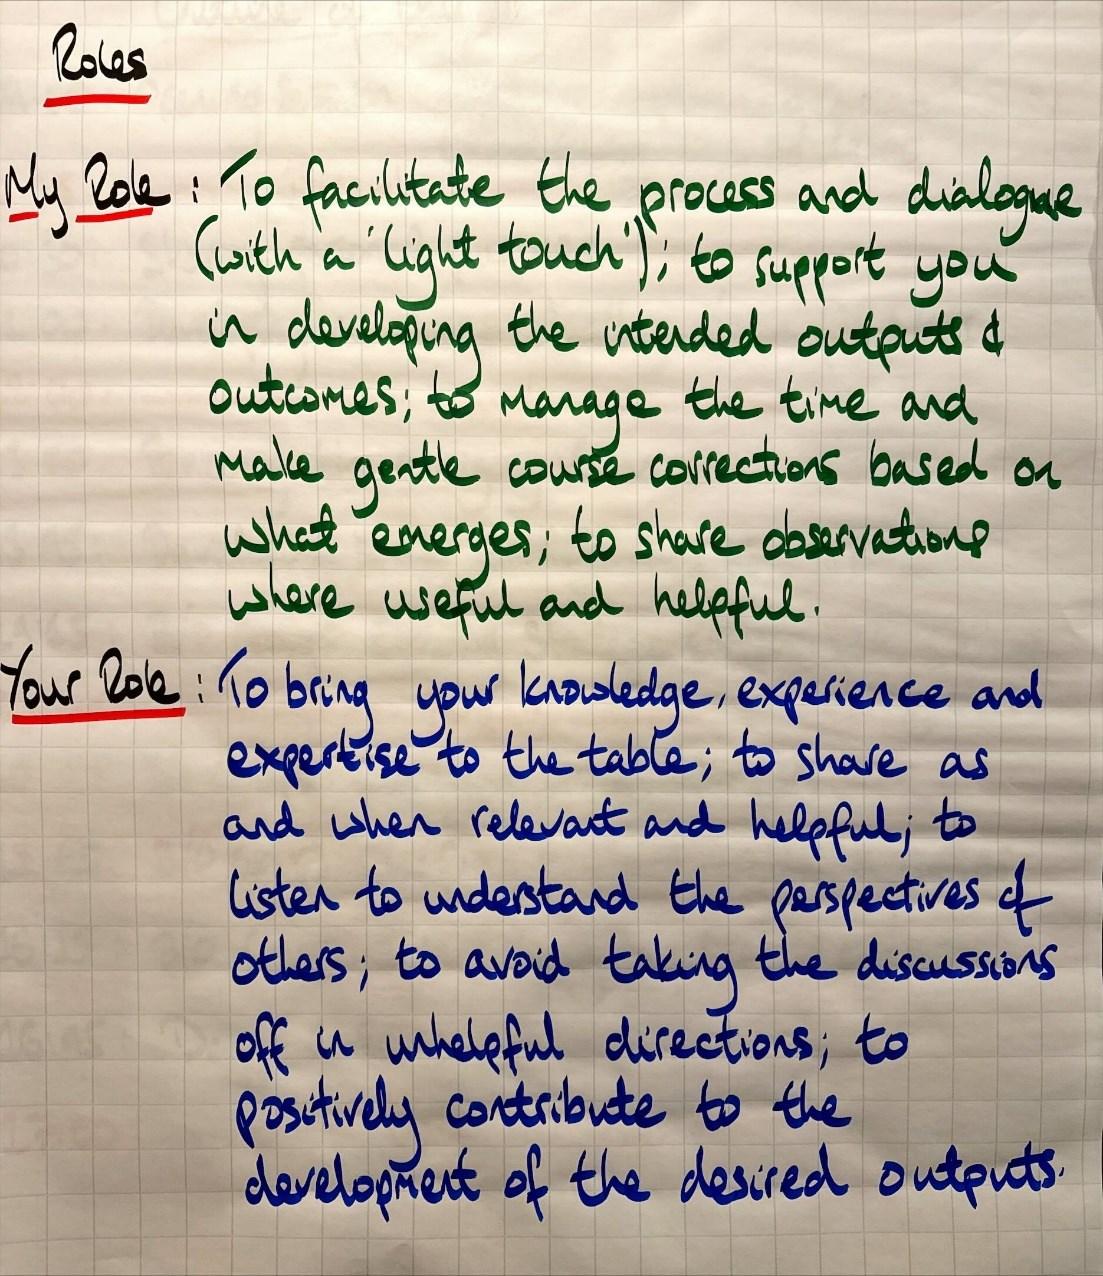 Roles
My Role : To facilitate the process and dialogue
(with a 'light touch'); to support you
in developing the intended outputs &
outcomes; to manage the time and
make gentle course corrections based on
what emerges; to share observations
where useful and helpful.
Your Role : To bring your knowledge, experience and
expertise to the table; to share as
and when relevant and helpful; to
listen to understand the perspectives of
others; to avoid taking the discussions
off in unhelpful directions; to
positively contribute to the
development of the desired outputs.